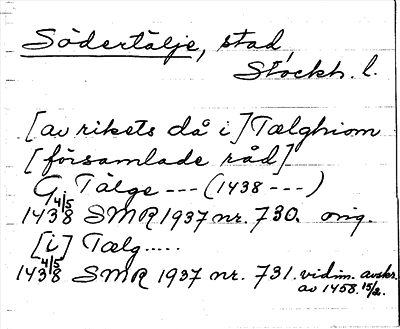 Södertälje, stad,
Stockh. l.
[av rikets då i] Tælghiom
[församlade råd]
G Tälge --- (1438 ---)
1438 4/5 SMR 1937 nr. 730. orig.
[i] Tælg.....
1438 4/5 SMR 1937 nr. 731. vidim. avskr.
av 1458. 15/2.